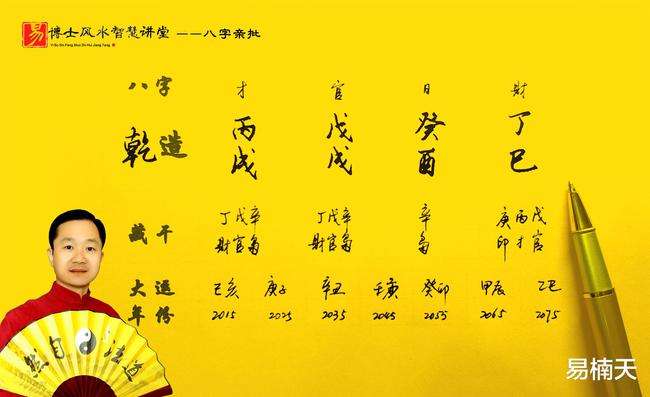 易 博士风水智慧讲堂 ——八字亲批
Yi Bo Shi Feng Shui Zhi Hui Jiang Tang
八字 才 官 日 財
乾造 丙 戊 癸 丁
戌 戌 酉 巳
藏干 丁戊辛 丁戊辛 辛 庚丙戊
財官枭 財官枭 枭 印才官
大运 己亥 庚子 辛丑 壬寅 癸卯 甲辰 乙巳
年份 2015 2025 2035 2045 2055 2065 2075
然自法道
易楠天